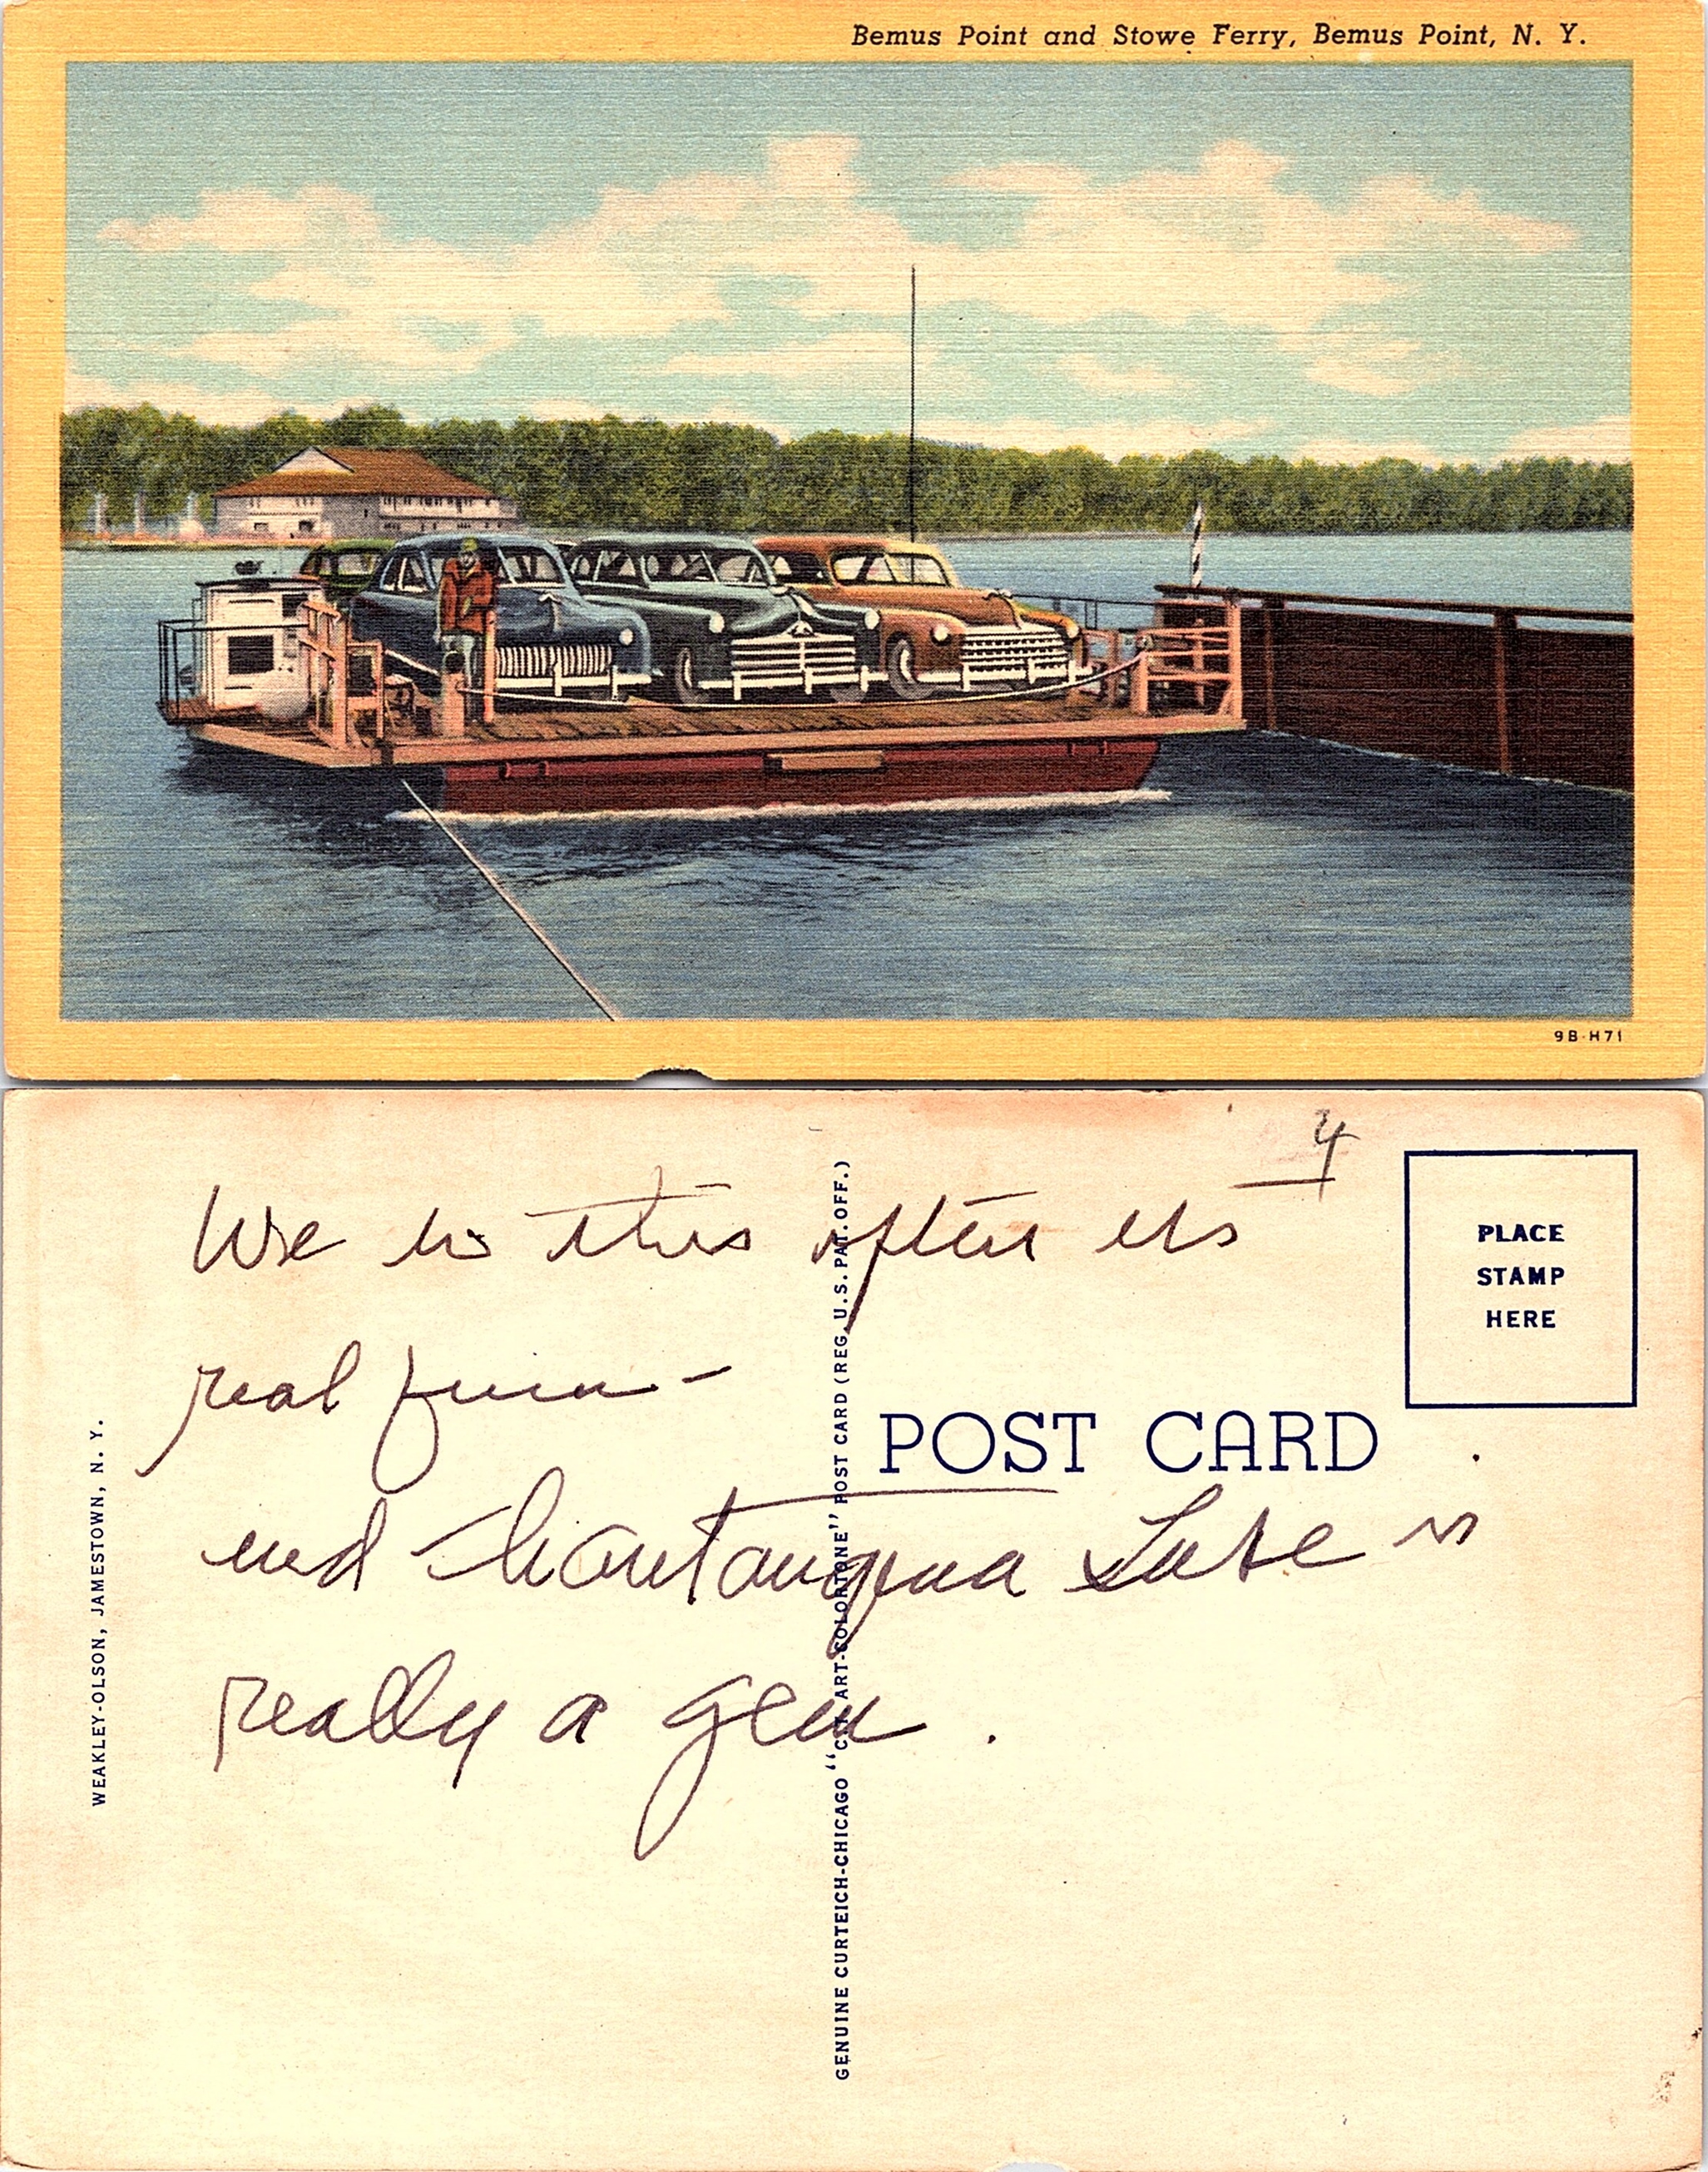 Bemus Point and Stowe Ferry, Bemus Point, N. Y.
9B-H71
4
We do this often its
real fun -
and Chautauqua Lake is
really a gem.
PLACE
STAMP
HERE
POST CARD
WEAKLEY-OLSON, JAMESTOWN, N. Y.
GENUINE CURTEICH-CHICAGO "C.T. ART-COLORTONE" POST CARD (REG. U.S. PAT. OFF.)